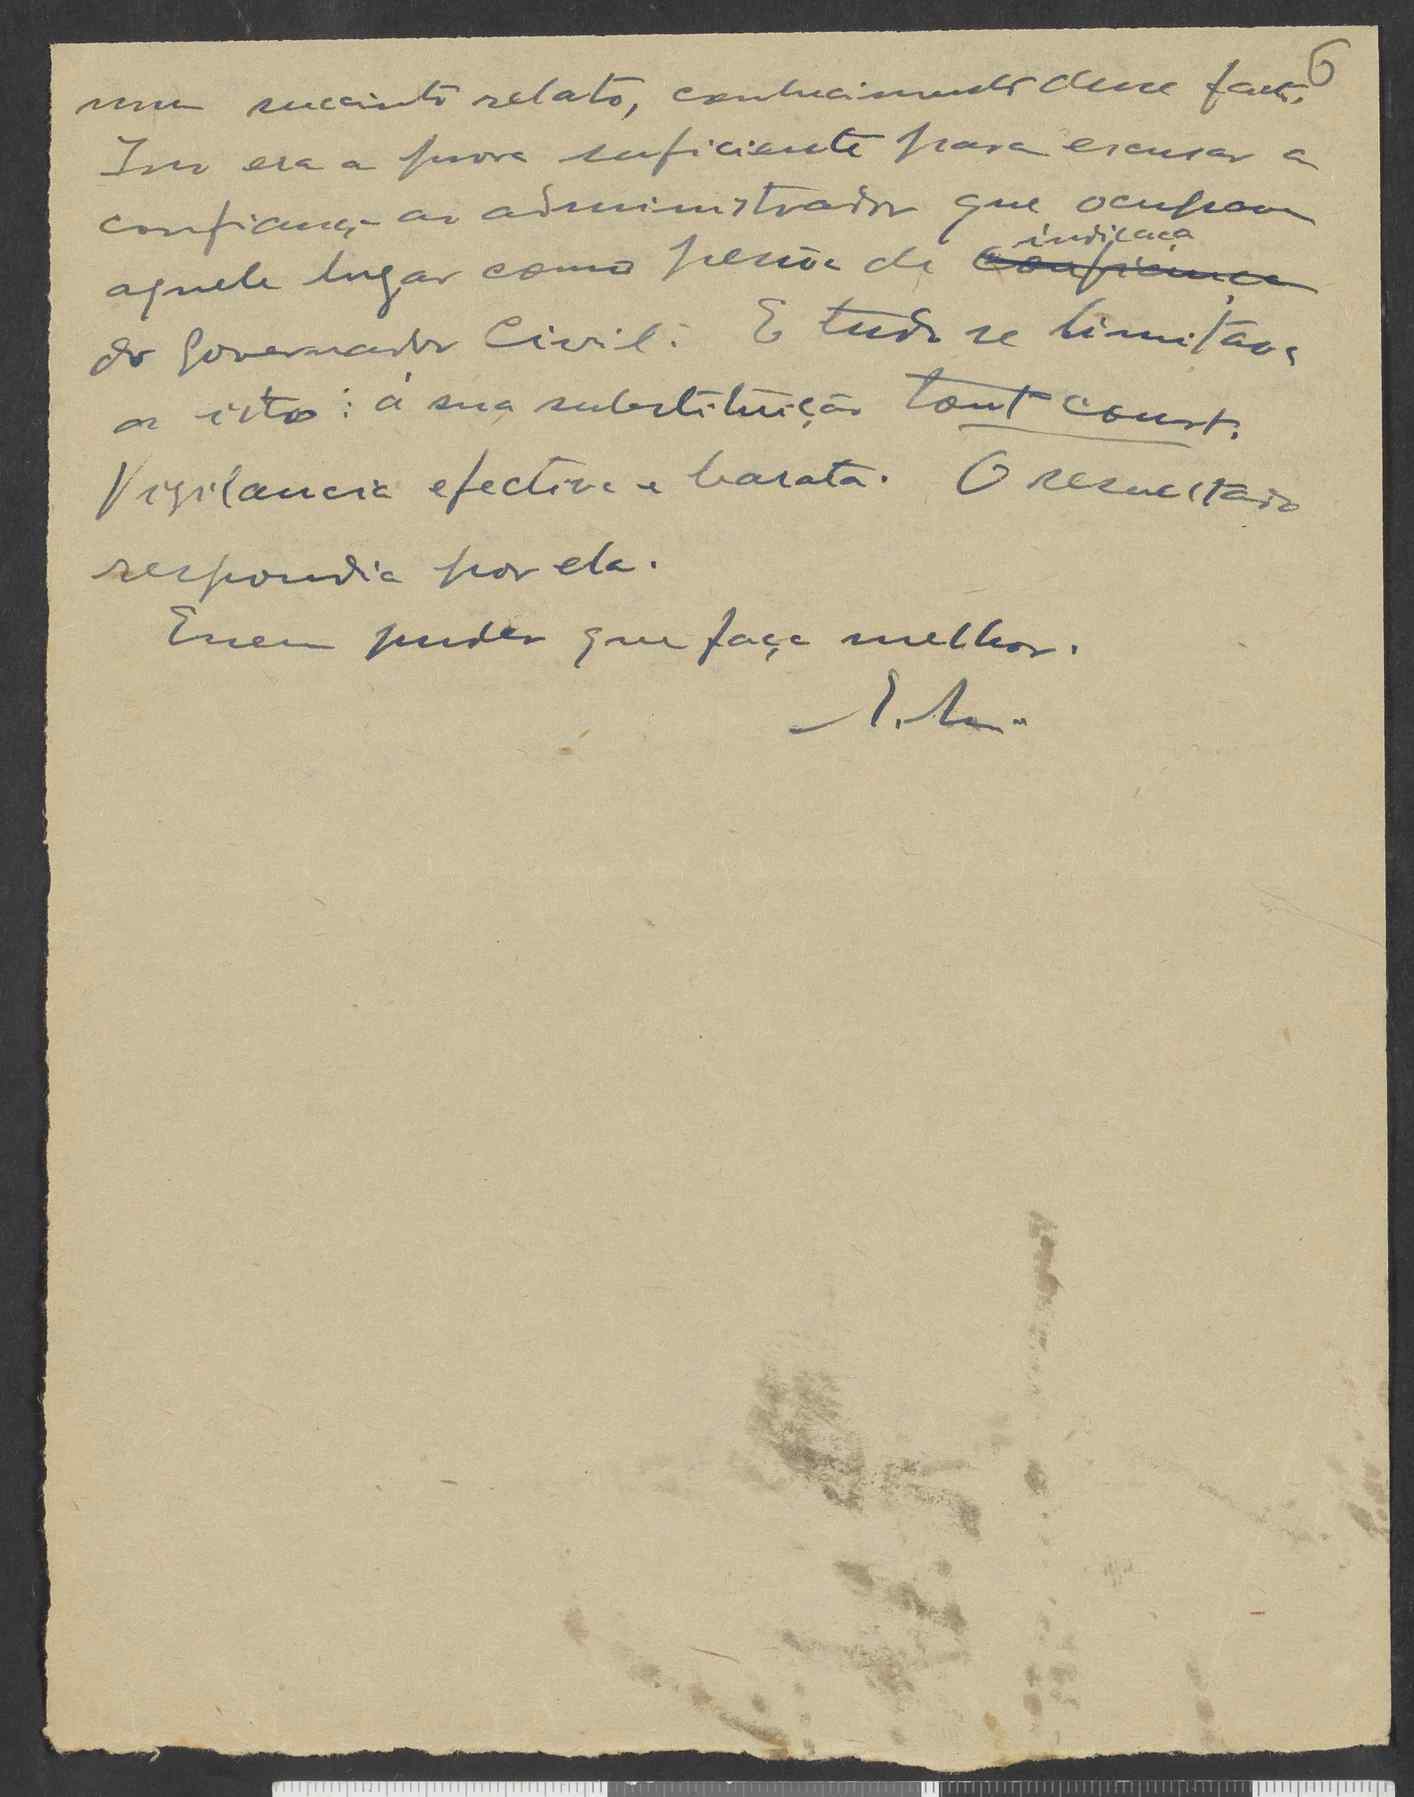 6
num succinto relato, conhecimento desse facto.
Isso era a prova suficiente para escusar a
confiança ao administrador que ocupava
aquele lugar como pessoa de indicaça
confiança
do Governador Civil. E tudo se limitava
a isto: á sua substituição tout court.
Vigilancia efectiva e barata. O resultado
respondia por ela.
Quem puder que faça melhor.